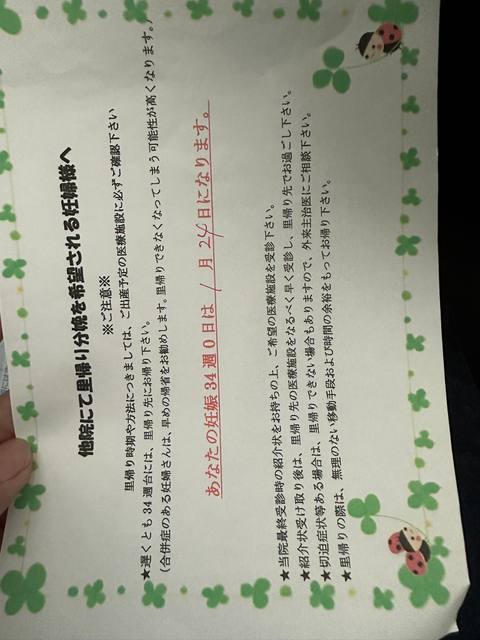 他院にて里帰り分娩を希望される妊婦様へ
※ご注意※
里帰り時期や方法につきましては、ご出産予定の医療施設に必ずご確認下さい
★遅くとも34週台には、里帰り先にお帰り下さい。
（合併症のある妊婦さんは、早めの帰省をお勧めします。里帰りできなくなってしまう可能性が高くなります。）
あなたの妊娠34週0日は 1 月 24 日になります。
★当院最終受診時の紹介状をお持ちの上、ご希望の医療施設を受診下さい。
★紹介状受け取り後は、里帰り先の医療施設をなるべく早く受診し、里帰り先でお過ごし下さい。
★切迫症状等ある場合は、里帰りできない場合もありますので、外来主治医にご相談下さい。
★里帰りの際は、無理のない移動手段および時間の余裕をもってお帰り下さい。